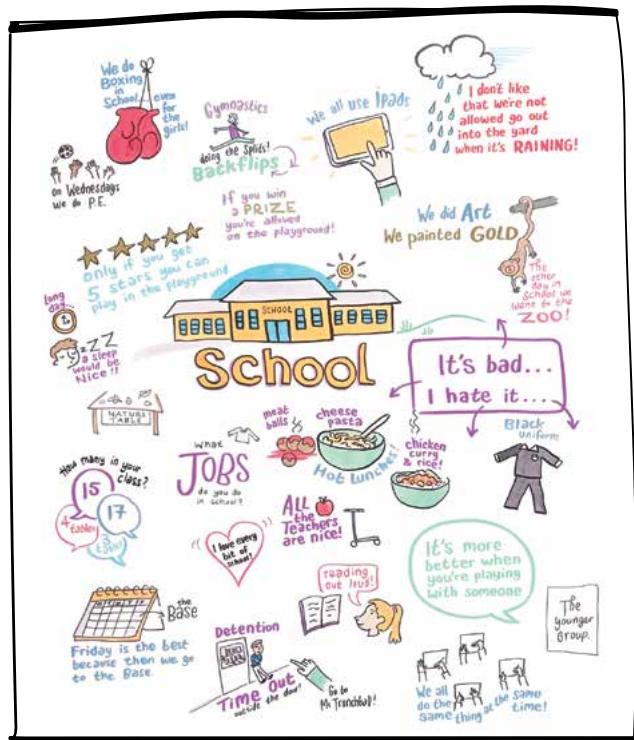 We do
Boxing
in
School... even
for
the
girls!
on Wednesdays
we do P.E.
Gymnastics
doing the splits!
Backflips
We all use ipads
I don't like
that we're not
allowed go out
into the yard
when it's RAINING!
If you win
a PRIZE
you're allowed
on the playground!
We did Art
We painted GOLD
The
other
day in
School we
went to the
ZOO!
only if you get
5 stars you can
play in the playground
long
day...
ZZZ
a sleep
would be
Nice!!
SCHOOL
School
It's bad...
I hate it....
NATURE
TABLE
What
JOBS
do you do
in school?
meat
balls
cheese
pasta
Hot Lunches!
chicken
curry
& rice!
Black
uniform
How many in your
class?
15
17
4 tables
3 tables
ALL
the
Teachers
are nice!
I love every
bit of
school!
It's more
better when
you're playing
with someone
reading
out loud!
The
younger
Group.
the
Base
Friday is the best
because then we go
to the Base.
Detention
Time Out
outside the door!
Go to
Ms Trunchbull!
We all
do the
same thing at the same
time!